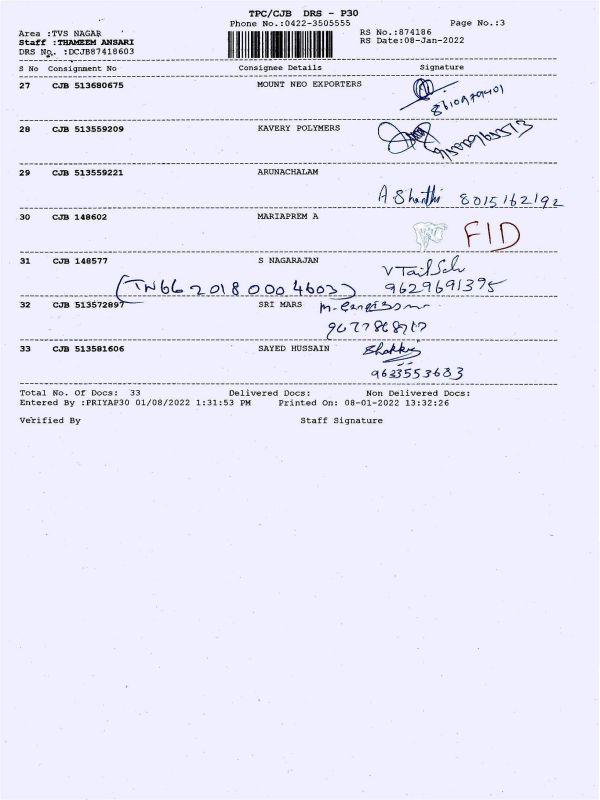 TPC/CJB DRS - P30
Phone No.:0422-3505555 Page No.:3
Area :TVS NAGAR RS No.:874186
Staff :THAMEEM ANSARI RS Date:08-Jan-2022
DRS No. :DCJB87418603
S No Consignment No Consignee Details Signature
27 CJB 513680675 MOUNT NEO EXPORTERS
28 CJB 513559209 KAVERY POLYMERS
29 CJB 513559221 ARUNACHALAM
A Shanthi 8015162192
30 CJB 148602 MARIAPREM A
FID
31 CJB 148577 S NAGARAJAN
9629691395
(TN66 2018 000 4603)
32 CJB 513572897 SRI MARS
33 CJB 513581606 SAYED HUSSAIN
9633553683
Total No. Of Docs: 33 Delivered Docs: Non Delivered Docs:
Entered By :PRIYAP30 01/08/2022 1:31:53 PM Printed On: 08-01-2022 13:32:26
Verified By Staff Signature